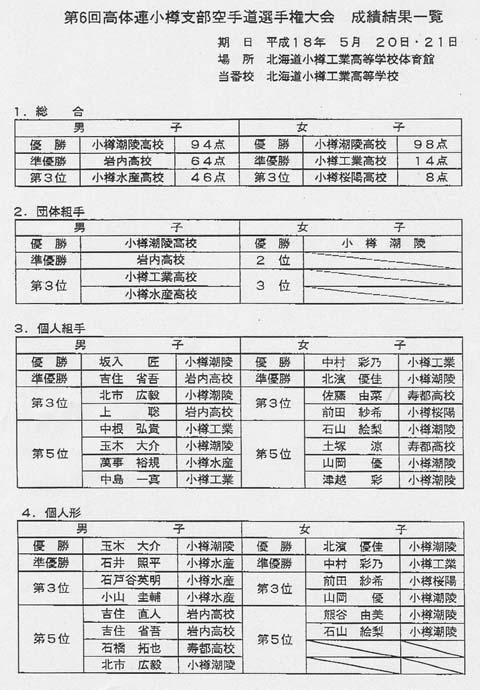 第6回高体連小樽支部空手道選手権大会 成績結果一覧
期 日 平成18年 5月 20日・21日
場 所 北海道小樽工業高等学校体育館
当番校 北海道小樽工業高等学校
1．総 合
男 子 女 子
優 勝 小樽潮陵高校 94点 優 勝 小樽潮陵高校 98点
準優勝 岩内高校 64点 準優勝 小樽工業高校 14点
第3位 小樽水産高校 46点 第3位 小樽桜陽高校 8点
2．団体組手
男 子 女 子
優 勝 小樽潮陵高校 優 勝 小 樽 潮 陵
準優勝 岩内高校 2 位
第3位 小樽工業高校 3 位
小樽水産高校
3．個人組手
男 子 女 子
優 勝 坂入 匠 小樽潮陵 優 勝 中村 彩乃 小樽工業
準優勝 吉住 省吾 岩内高校 準優勝 北濱 優佳 小樽潮陵
第3位 北市 広毅 小樽潮陵 第3位 佐藤 由菜 寿都高校
上 聡 岩内高校 前田 紗希 小樽桜陽
第5位 中根 弘貴 小樽工業 第5位 石山 絵梨 小樽潮陵
玉木 大介 小樽潮陵 土塚 涼 寿都高校
萬事 裕規 小樽水産 山岡 優 小樽潮陵
中島 一真 小樽工業 津越 彩 小樽潮陵
4．個人形
男 子 女 子
優 勝 玉木 大介 小樽潮陵 優 勝 北濱 優佳 小樽潮陵
準優勝 石井 照平 小樽水産 準優勝 中村 彩乃 小樽工業
第3位 石戸谷英明 小樽水産 第3位 前田 紗希 小樽桜陽
小山 圭輔 小樽水産 山岡 優 小樽潮陵
第5位 吉住 直人 岩内高校 第5位 熊谷 由美 小樽潮陵
吉住 省吾 岩内高校 石山 絵梨 小樽潮陵
石橋 拓也 寿都高校
北市 広毅 小樽潮陵